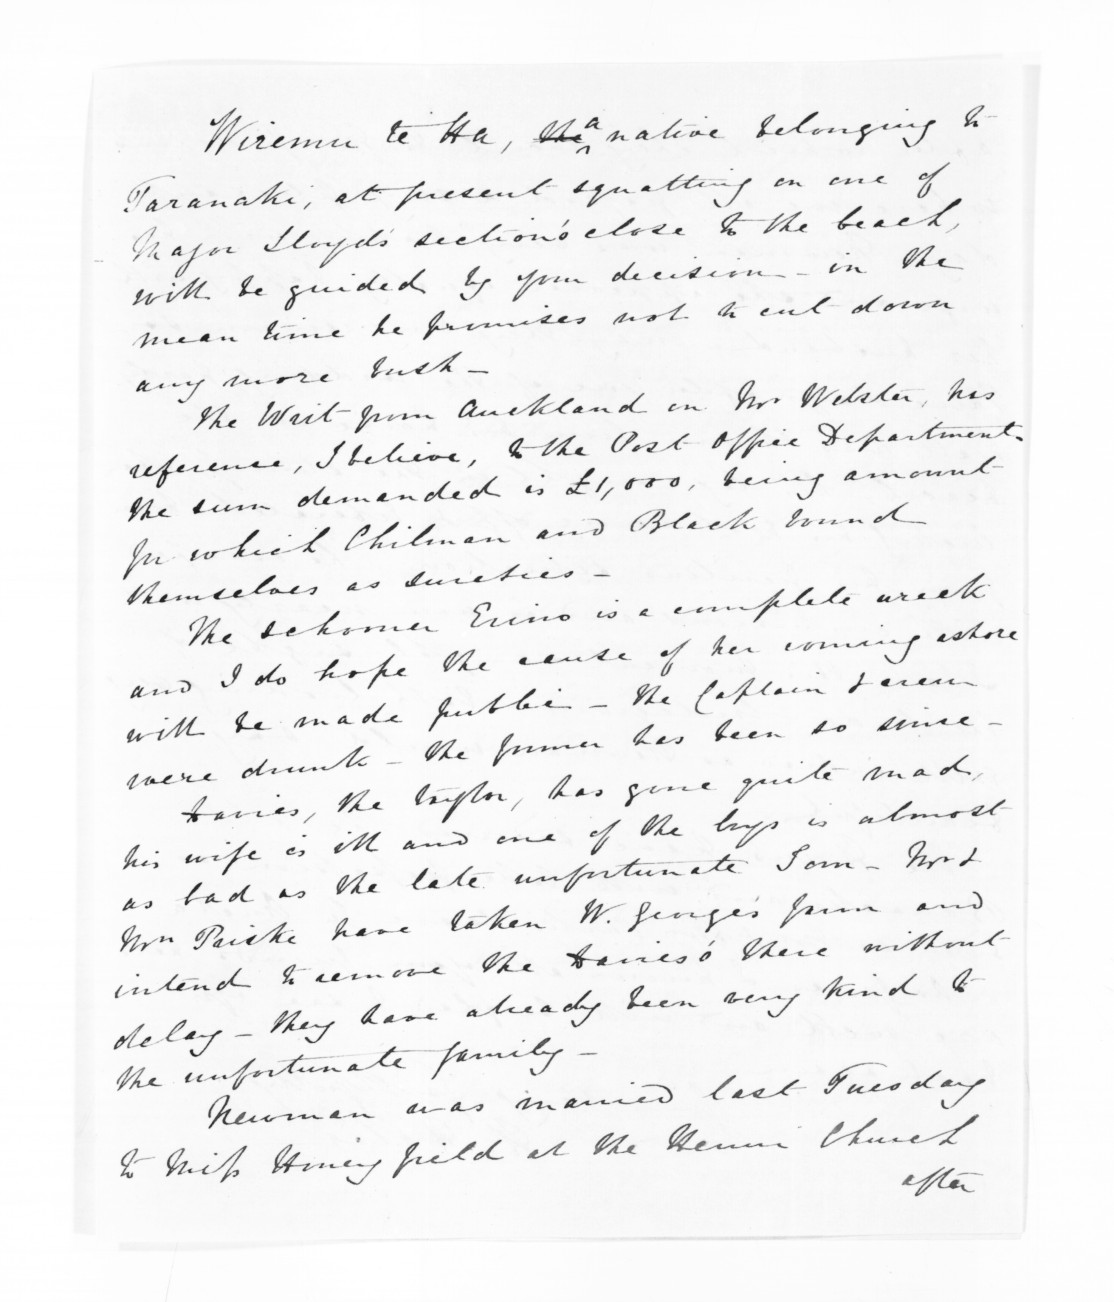 Wiremu te Ha, the a native belonging to
Taranaki, at present squatting on one of
Major Lloyd's section's close to the beach,
will be guided by your decision - in the
mean time he promises not to cut down
any more bush -
The Writ from Auckland on Mr Webster, has
reference, I believe, to the Post Office Department.
The sum demanded is £1,000, being amount
for which Chilman and Black bound
themselves as sureties -
The schooner Erino is a complete wreck
and I do hope the cause of her coming ashore
will be made public - The Captain & crew
were drunk - the former has been so since -
Davies, the taylor, has gone quite mad,
his wife is ill and one of the boys is almost
as bad as the late unfortunate Tom - Mr &
Mrs Paiske have taken W. George's farm and
intend to remove the Davies's there without
delay - they have already been very kind to
the unfortunate family -
Newman was married last Tuesday
to Miss Honeyfield at the Henui Church
after